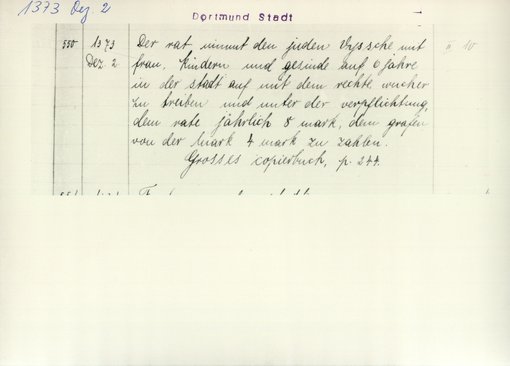 1373 Dez. 2
Dortmund Stadt
550 1373 Dez. 2 Der rat nimmt den juden Vyssche mit II 10
frau, kindern und gesinde auf 6 jahre
in der stadt auf mit dem rechte wucher
zu treiben und unter der verpflichtung,
dem rate jährlich 8 mark, dem grafen
von der Mark 4 mark zu zahlen.
Grosses copierbuch, p. 244.